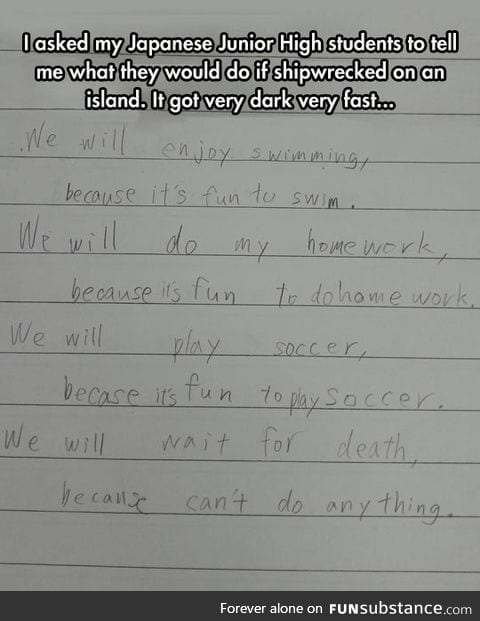 I asked my Japanese Junior High students to tell
me what they would do if shipwrecked on an
island. It got very dark very fast...
We will enjoy swimming,
because it's fun to swim.
We will do my homework,
because it's fun to do home work.
We will play soccer,
becase it's fun to play soccer.
We will wait for death,
becanse can't do anything.
Forever alone on FUNsubstance.com